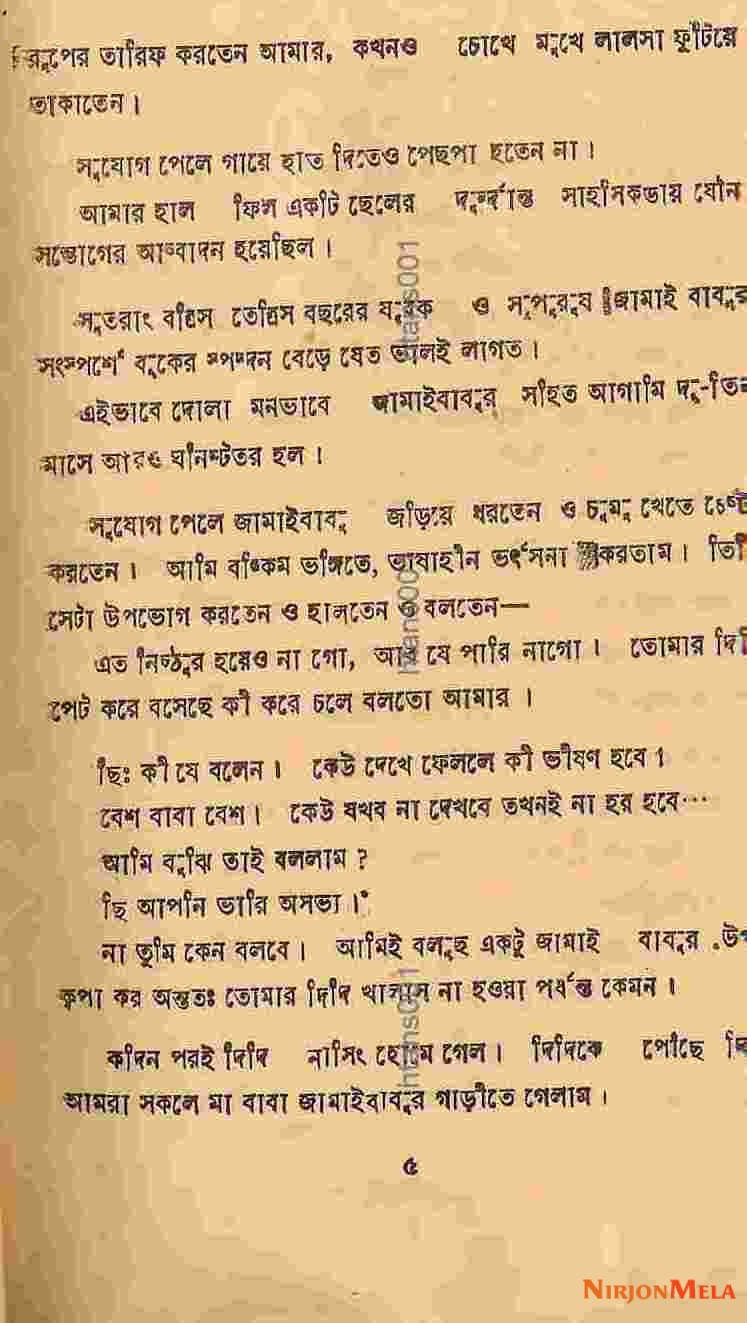 রূপের তারিফ করতেন আমার, কখনও চোখে মুখে লালসা ফুটিয়ে
তাকাতেন।
সুযোগ পেলে গায়ে হাত দিতেও পেছপা হতেন না।
আমার হাল ফিল একটি ছেলের দুর্দান্ত সাহসিকতায় যৌন
সম্ভোগের আস্বাদন হয়েছিল।
সুতরাং বত্রিস তেত্রিস বছরের যুবক ও সুপুরুষ জামাই বাবুর
সংস্পর্শে বুকের স্পন্দন বেড়ে যেত ভালই লাগত।
এইভাবে দোলা মনভাবে জামাইবাবুর সহিত আগামি দু-তিন
মাসে আরও ঘনিষ্টতর হল।
সুযোগ পেলে জামাইবাবু জড়িয়ে ধরতেন ও চুমু খেতে চেষ্ট
করতেন। আমি বঙ্কিম ভঙ্গিতে, ভাষাহীন ভর্ৎসনা করতাম। তিি
সেটা উপভোগ করতেন ও হাসতেন ও বলতেন—
এত নিষ্ঠুর হয়েও না গো, আর যে পারি নাগো। তোমার দিি
পেট করে বসেছে কী করে চলে বলতো আমার।
ছিঃ কী যে বলেন। কেউ দেখে ফেললে কী ভীষণ হবে।
বেশ বাবা বেশ। কেউ যখব না দেখবে তখনই না হর হবে···
আমি বুঝি তাই বললাম?
ছি আপনি ভারি অসভ্য।
না তুমি কেন বলবে। আমিই বলছি একটু জামাই বাবুর উপ
কৃপা কর অন্ততঃ তোমার দিদি খালাস না হওয়া পর্যন্ত কেমন।
কদিন পরই দিদি নার্সিং হোমে গেল। দিদিকে পৌছে দি
আমরা সকলে মা বাবা জামাইবাবুর গাড়ীতে গেলাম।
৫
NIRJONMELA